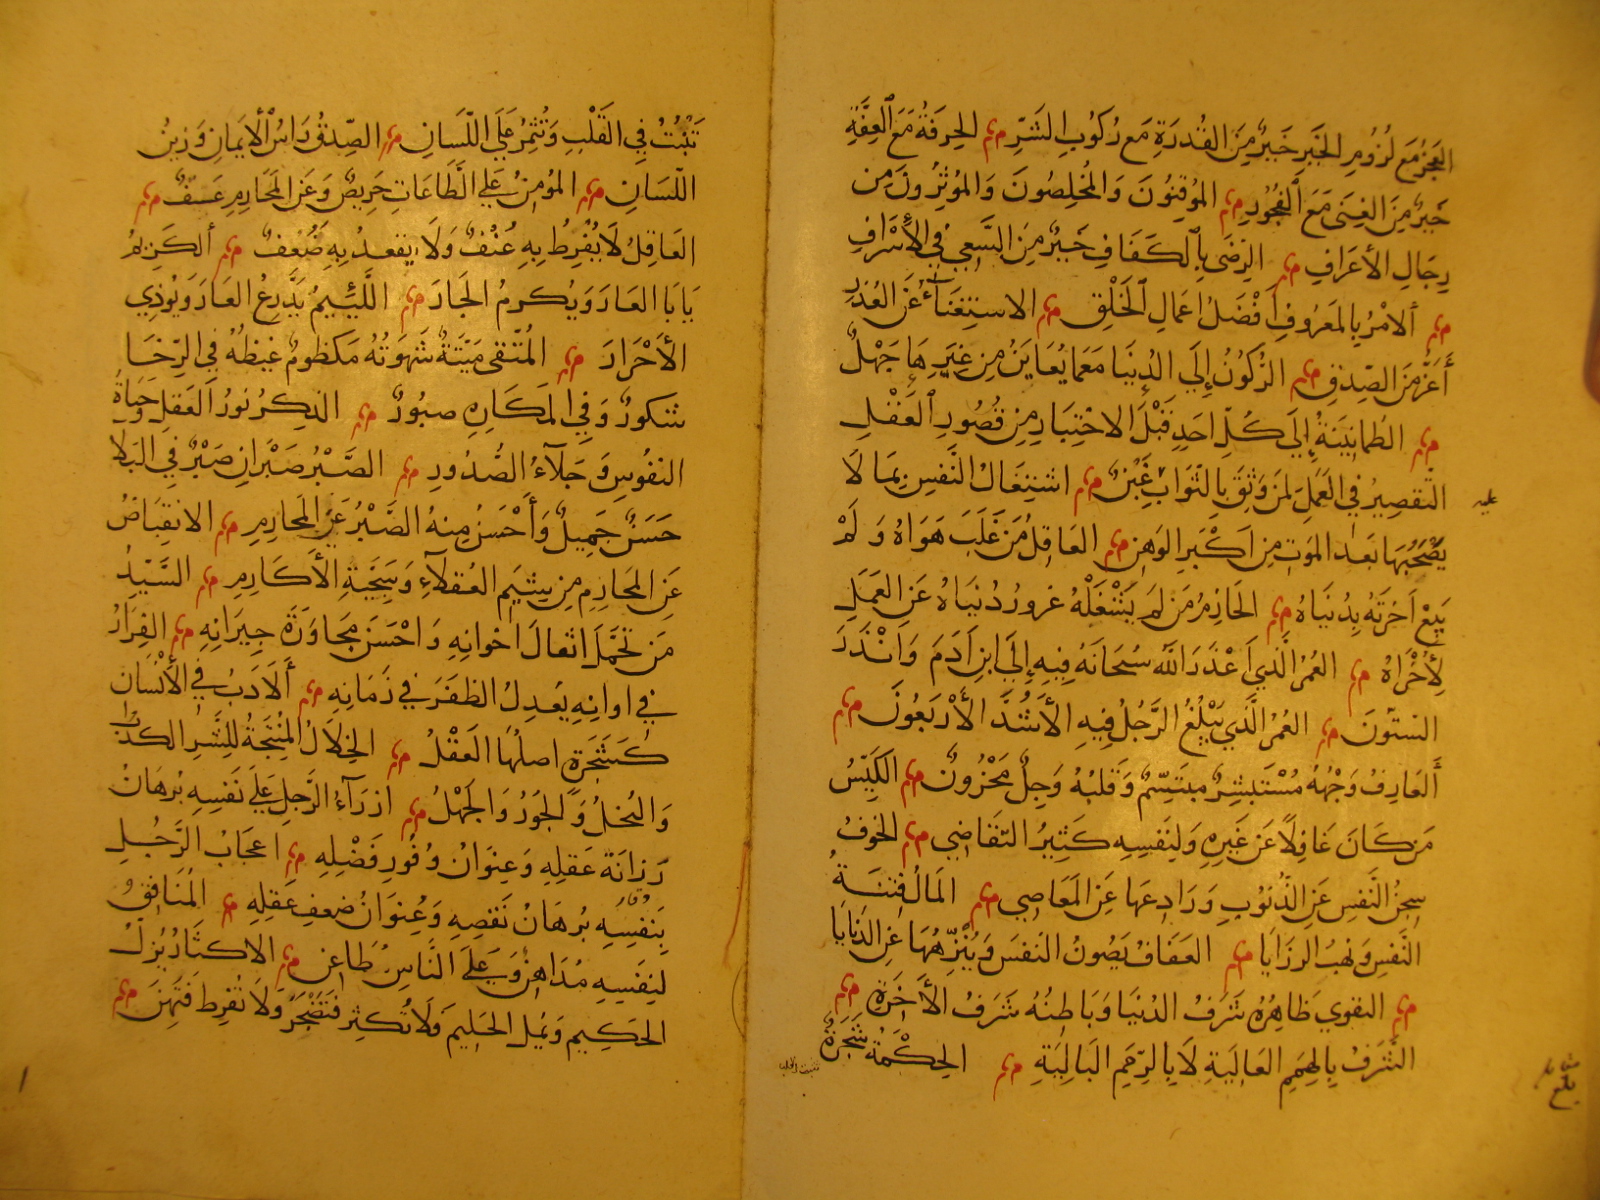 العجز مع لزوم الخير خير من القدرة مع ركوب الشر م الحرفة مع العفة
خير من الغنى مع الفجور م الموقنون والمخلصون والمؤثرون من
رجال الأعراف م الرضى بالكفاف خير من السعي في الأسراف
م الامر بالمعروف افضل اعمال الخلق م الاستغناء عن العذر
أعز من الصدق م الركون إلي الدنيا مع ما يعاين من غيرها جهل
م الطمانينة إلى كل احد قبل الاختبار من قصور العقل
التقصير في العمل لمن وثق بالثواب غبن م اشتغال النفس بما لا
عليه
يصحبها بعد الموت من اكبر الوهن م العاقل من غلب هواه ولم
يبع اخرته بدنياه م الحازم من لم يشغله غرور دنياه عن العمل
لأخراه م العمر الذي اعذر الله سبحانه فيه إلي ابن ادم وانذر
الستون م العمر الذي يبلغ الرجل فيه الأشد الأربعون م
ألعارف وجهه مستبشر مبتسم وقلبه وجل محزون م الكيس
من كان غافلا عن غيره ولنفسه كثير التقاضي م الخوف
سجن النفس عن الذنوب ورادعها عن المعاصي م المال فتنة
النفس ونهب الرزايا م العفاف يصون النفس وينزهها عن الدنايا
م التقوي ظاهره شرف الدنيا وباطنه شرف الأخرة م
الشرف بالهمم العالية لا بالرمم البالية م الحكمة شجرة
تنبت في القلب
بلغ
تنبت في القلب وتثمر علي اللسان م الصدق راس الايمان وزين
اللسان م المؤمن علي الطاعات حريص وعن المحارم عف م
العاقل لا يفرط به عنف ولا يقعد به ضعف م ألكريم
يابا العار ويكرم الجار م اللئيم يدرع العار ويوذي
الأحرار م المتقى ميتة شهوته مكظوم غيظه في الرخا
شكور وفي المكاره صبور م الذكر نور العقل وحياة
النفوس وجلآء الصدور م الصبر صبران صبر في البلا
حسن جميل وأحسن منه الصبر عن المحارم م الانقباض
عن المحارم من شيم العقلآء وسجية الأكارم م السيد
من تحمل اثقال اخوانه واحسن مجاورة جيرانه م الفرار
في اوانه يعدل الظفر في زمانه م ألادب في الأنسان
كشجرة اصلها العقل م الخلال المنتجة للشر الكذب
والبخل والجور والجهل م ازرآء الرجل علي نفسه برهان
رزانة عقله وعنوان وفور فضله م اعجاب الرجل
بنفسه برهان نقصه وعنوان ضعف عقله م المنافق
لنفسه مداهن وعلي الناس طاعن م الاكثار يزل
الحكيم ويمل الحليم ولا تكثر فتضجر ولا تفرط فتهن م